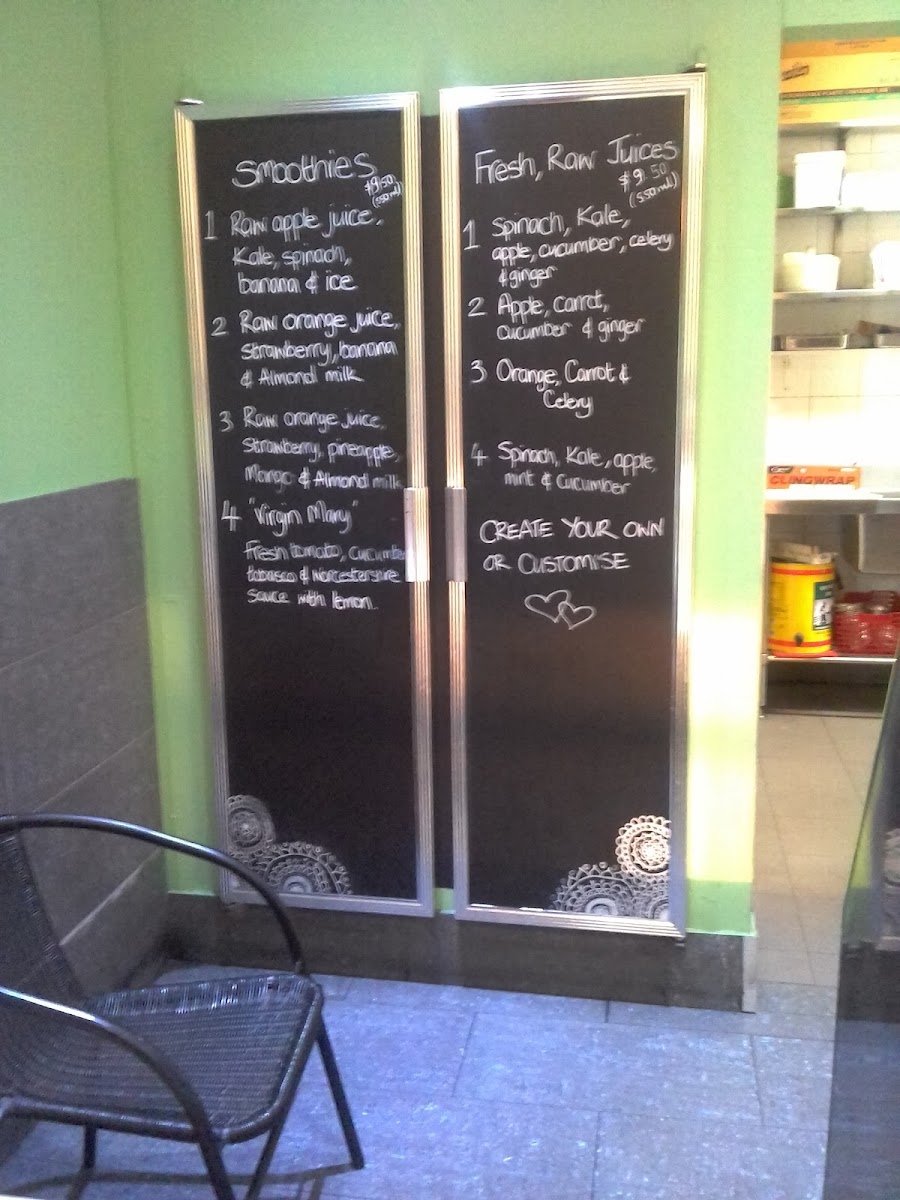 Smoothies
$9.50
(550ml)
1 Raw apple juice,
Kale, spinach,
banana & ice
2 Raw orange juice,
strawberry, banana
& Almond milk
3 Raw orange juice,
Strawberry, pineapple,
Mango & Almond milk
4 "Virgin Mary"
Fresh tomato, cucumber
tobasco & Worcestershire
sauce with lemon.
Fresh, Raw Juices
$9.50
(550ml)
1 Spinach, Kale,
apple, cucumber, celery
& ginger
2 Apple, Carrot,
cucumber & ginger
3 Orange, Carrot &
Celery
4 Spinach, Kale, apple,
mint & Cucumber
CREATE YOUR OWN
OR CUSTOMISE
CLINGWRAP